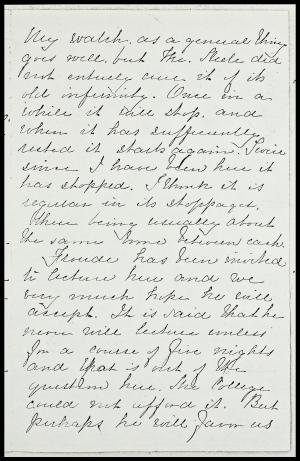 My watch, as a general thing
goes well, but Mr. Steele did
not entirely cure it of its
old infirmity. Once in a
while it will stop, and
when it has sufficiently
rested it starts again. Twice
since I have been here it
has stopped. I think it is
regular in its stoppages,
there being usually about
the same time between each.
Froude has been invited
to lecture here and we
very much hope he will
accept. It is said that he
never will lecture unless
for a course of five nights
and that is out of the
question here. The College
could not afford it. But
perhaps he will favor us